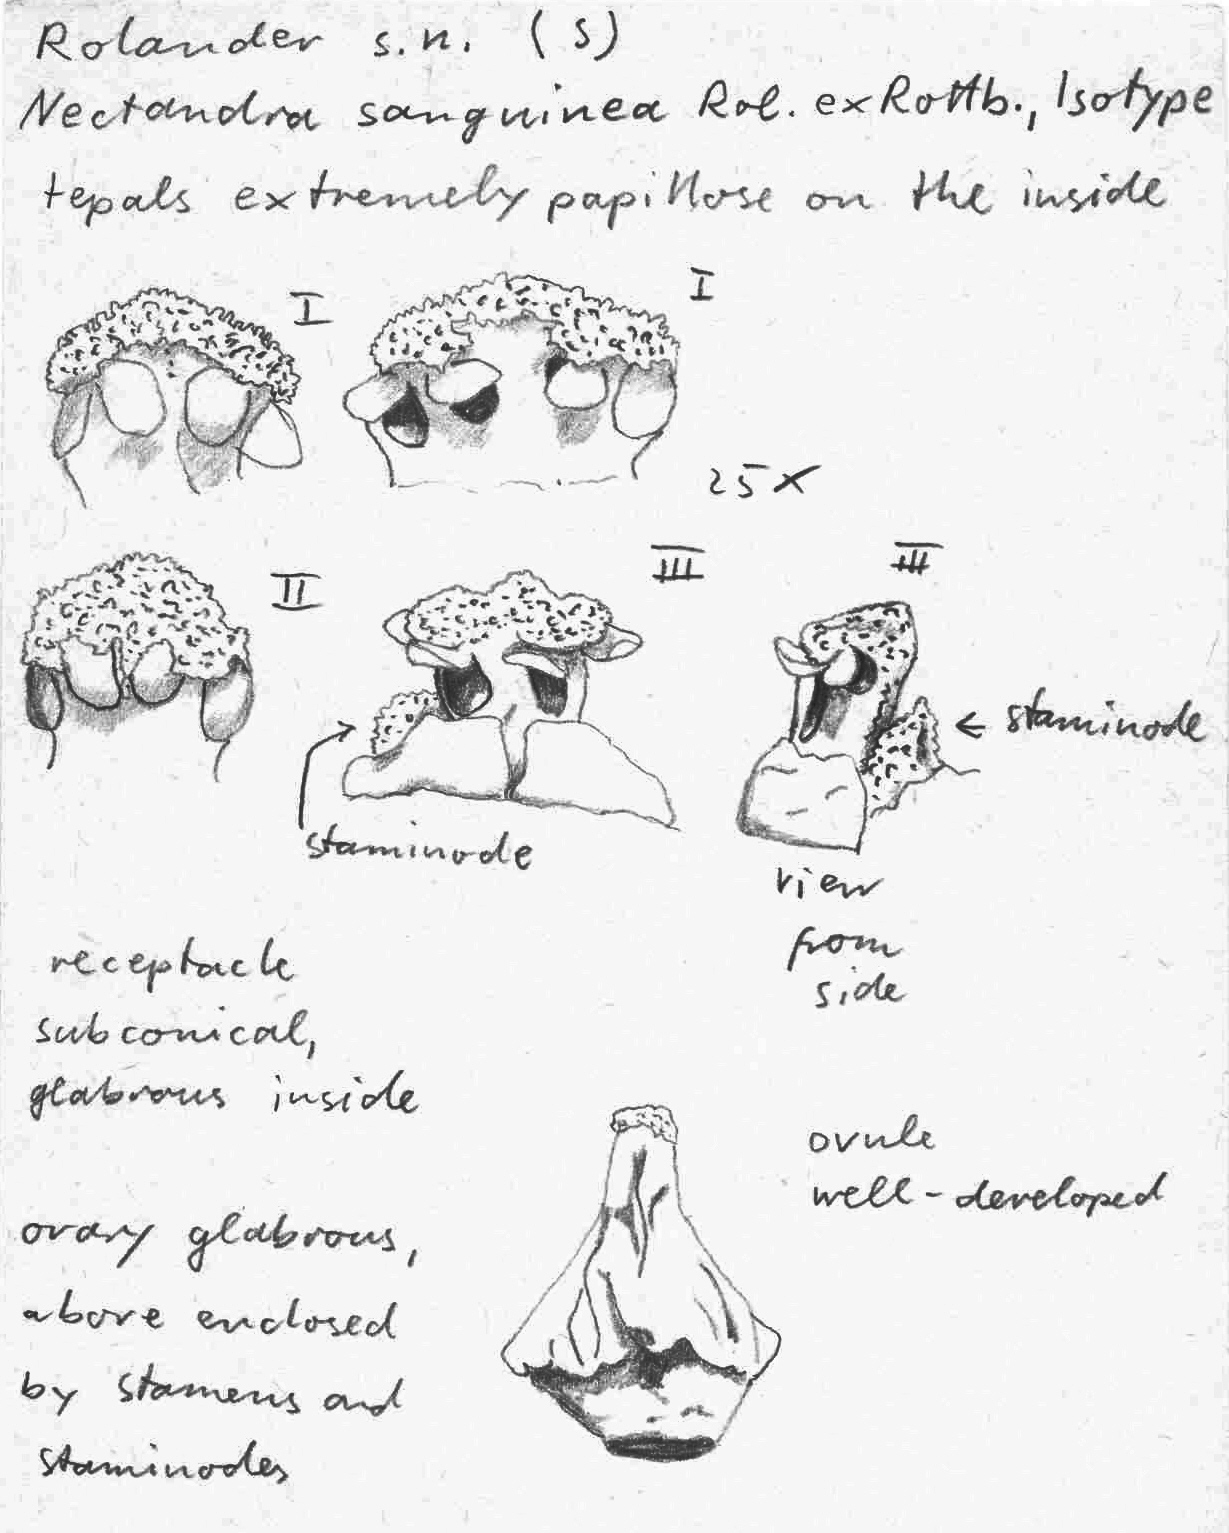 Rolander s.n. (S)
Nectandra sanguinea Rol. ex Rottb., Isotype
tepals extremely papillose on the inside
I
I
25x
II
III
III
staminode
staminode
view
from
side
receptacle
subconical,
glabrous inside
ovule
well-developed
ovary glabrous,
above enclosed
by stamens and
staminodes